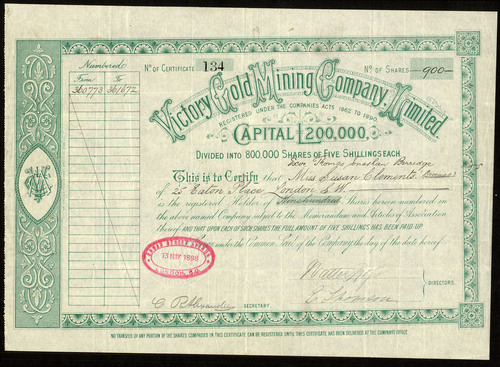 Numbered
From To
360773 361672
No of Certificate 134
No of Shares -900-
Victory Gold Mining Company, Limited.
REGISTERED UNDER THE COMPANIES ACTS 1862 TO 1890.
CAPITAL £200,000,
DIVIDED INTO 800,000 SHARES OF FIVE SHILLINGS EACH.
This is to Certify that Miss Susan Clements
of 25 Eaton Place, London S.W.
is the registered Holder of Ninehundred Shares numbered
the above named Company subject to the Memorandum and Articles of Association
thereof AND THAT UPON EACH OF SUCH SHARES THE FULL AMOUNT OF FIVE SHILLINGS HAS BEEN PAID UP.
under the Common Seal of the Company the day of the date hereof.
13 MAY 1898
LONDON
DIRECTORS.
SECRETARY.
NO TRANSFER OF ANY PORTION OF THE SHARES COMPRISED IN THIS CERTIFICATE CAN BE REGISTERED UNTIL THIS CERTIFICATE HAS BEEN DELIVERED AT THE COMPANY'S OFFICE.